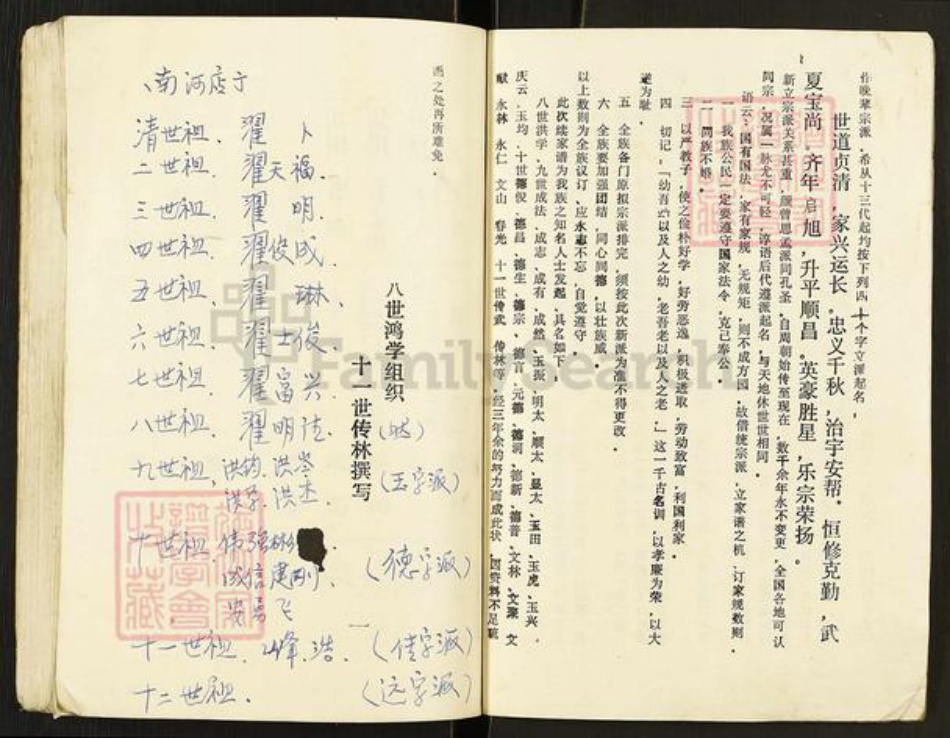 作晚辈宗派，希从十三代起均按下列四十个字立派起名，
世道贞清，家兴运长，忠义千秋，治宇安帮，恒修克勤，武
夏宝尚，齐年启旭，升平顺昌，英豪胜星，乐宗荣扬。
新立宗派关系甚重，颜曾思孟派同孔圣，自周朝始传至现在，数千余年永不变更，全国各地可认
同宗，况属一脉尤不可轻，谆语后代遵派起名，与天地休世世相同。
语云：国有国法，家有家规，无规矩，则不成方园，故借统宗派，立家谱之机，订家规数则
一 我族公民一定要遵守国家法令，克己奉公。
二 同族不婚。
三 以严教子，使之俭朴好学，好劳恶逸，积极进取，劳动致富，利国利家。
四 切记，「幼吾幼以及人之幼，老吾老以及人之老，」这一千古名训，以孝廉为荣，以大
逆为耻。
五 全族各门原拟宗派排完，须按此次新派为准不得更改。
六 全族要加强团结，同心同德，以壮族威。
以上数则为全族议订，应永志不忘，自觉遵守
此次续家谱为我族之知名人士发起，具名如下，
八世洪学、九世成法、成志、成有、成然、玉振、明太、顺太、显太、玉田、玉虎、玉兴、
庆云、玉均、十世德俊、德昌、德生、德宗、德言、元德、德润、德新、德普、文林、文聚、文
献、永林、永仁、文山、春光、十一世传武、传林等，经三年余的努力而成此状，因资料不足疏
漏之处再所难免。
八世鸿学组织
十一世传林撰写
一
南河店于
清世祖、翟 卜
二世祖、翟天福、
三世祖、翟 明、
四世祖、翟俊成、
五世祖、翟 琳、
六世祖、翟士俊、
七世祖、翟富兴
八世祖、翟明法、
九世祖、洪钧、洪岑
洪学、洪杰、(玉字派)
十世祖、伟 强
成 信 建刚、(德字派)
安 飞
十一世祖、峰、浩、(传字派)
十二世祖、(远字派)
FamilySearch